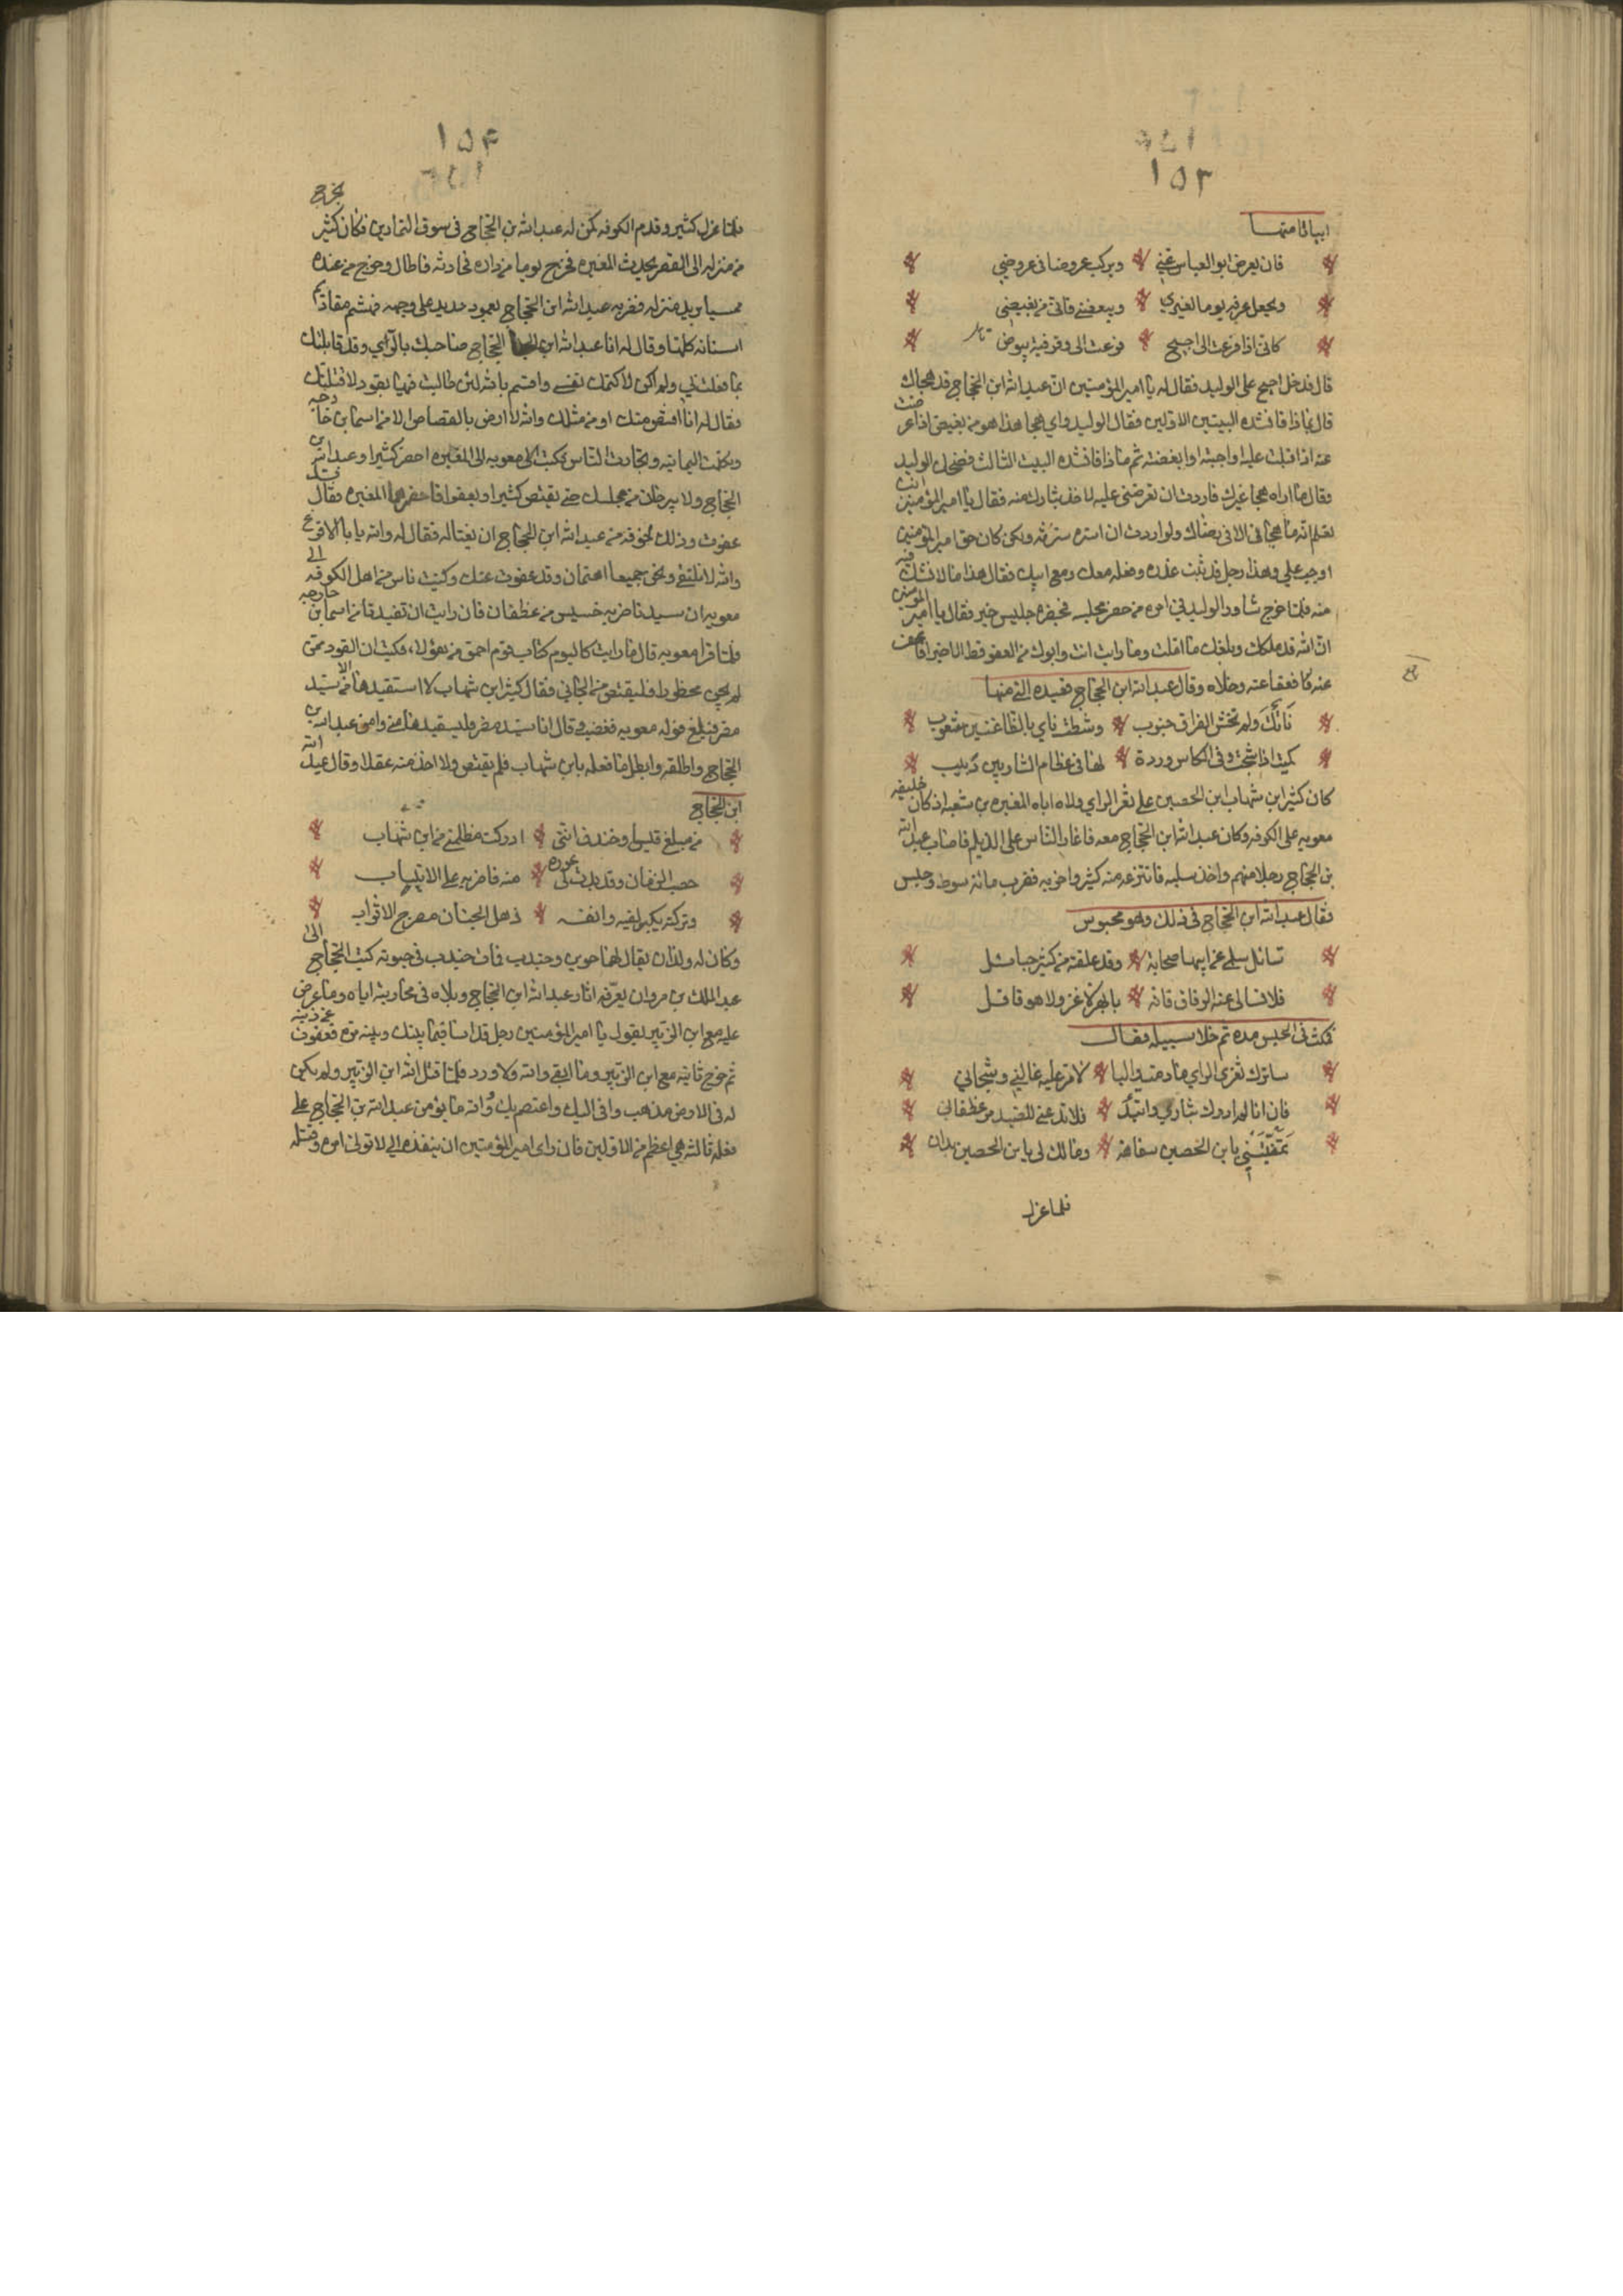 ١٥٣
ابياتا منها
فان يعرض ابو العباس عني ويركب عروضا في عروضي
ويجعل عرفه يوما لغيري ويبغضني فاني من بغيضي
كاني اذا فزعت الى احيح فزعت الى وقوقية بيوض
قال فدخل احيح على الوليد فقال له يا امير المؤمنين ان عبد الله ابن الحجاج قد هجاك
قال بماذا فانشده البيتين الاولين فقال الوليد واي هجا هذا هو من بغيض ان اعرضت
عنه او اقبلت عليه او احببته او ابغضته ثم ماذا فانشده البيت الثالث فضحك الوليد
وقال ما اراه هجا غيرك فاردت ان تعرضني عليه لاخذ بثارك منه فقال يا امير المؤمنين انت
تعلم انه ما هجاني الا في رضاك ولو اردت ان استره سترته ولكن كان حق امير المؤمنين
اوجب علي وهذا رجل قد ثبت غدره وفعله معك ومع ابيك فقال هذا ما لا نشك فيه
منه فلما خرج شاور الوليد في امره من حضر مجلسه فحضره جليس خير فقال يا امير المومنين
ان الله قد ملكك وبلغك ما املت وما رايت انت وابوك من العفو قط الا خيرا فاعف
عنه فا فعفا عنه وخلاه وقال عبد الله ابن الحجاج قصيده التي منها
نأتك ولم تخش الفراق جنوب وشطت نأي بالظاعنين شعوب
كميت اذا شجت وفي الكاس وردة لها في عظام الشاربين دبيب
كان كثير ابن شهاب ابن الحصين على ثغر الراي ولاه اياه المغيره بن شعبه اذ كان خليفه
معويه على الكوفه وكان عبد الله ابن الحجاج معه فاغار الناس على الديلم فاصاب عبد الله
بن الحجاج رجلا منهم واخذ سلبه فانتزعه منه كثير واضربه فضرب مائة سوط وحبس
فقال عبد الله ابن الحجاج في ذلك وهو محبوس
تسائل سلمى عن ابيها صحابة وقد علقته من كثير حبائل
فلا تسالي عنه الرفاق فانه بابهر لا غز ولا هو قافل
فمكث في الحبس مده ثم خلا سبيله فقال
ساترك ثغر الراي ما دمت واليا لامر عليه غالبني وشجاني
فان انا لم ادرك بثاري واتئر فلا تدعني للصيد من غطفان
تمنيتني يابن الحصين سفاهة ومالك لي يابن الحصين يدان
فلما عزل
١٥٤
فلما عزل كثير وقدم الكوفه كمن له عبد الله بن الحجاج في سوق التمارين وكان كثير يخرج
من منزله الى القصر يحدث المغيره فخرج يوما من داره فحادثه فاطال وخرج من عنده
ممسيا يريد منزله فضربه عبد الله ابن الحجاج بعمود حديد على وجهه فهشم مقاديم
اسنانه كلها وقال له انا عبد الله ابن الحجاج صاحبك بالراي وقد قابلتك
بما فعلت بي ولم اكن لاكتمك نفسي واقسم بالله لئن طالبت فيها بقود لاقتلنك
فقال له انا اقتص منك او من مثلك والله لا ارض بالقصاص الا من اسما بن خارجه
وتكلمت اليمانيه وتحارب الناس فكتب الى معويه الى المغيره احضر كثيرا وعبد الله بن
الحجاج ولا يبرحان من مجلسك حتى يقتص كثيرا او يعفوا فاحضرهما المغيره فقال قد
عفوت وذلك لخوفه من عبد الله ابن الحجاج ان يغتاله فقال له والله يا با الاقرع
والله لا نلتقي ونحن جميعا اهتمان وقد عفوت عنك وكتب ناس من اهل الكوفه الى
معويه ان سيدنا ضربه خسيس من غطفان فان رايت ان تقيدنا من اسما بن خارجه
فلما قرا معويه قال ما رايت كاليوم كتاب قوم احمق من هؤلاء فكتب ان القود ممن
لم يجن محظور فليقتص من الجاني فقال كثير ابن شهاب لا استقيدها الا من سيد
مضر فبلغ قوله معويه فغضب وقال انا سيد مضر فليستقيدها مني وامن عبد الله بن
الحجاج واطلقه وابطل ما فعله بابن شهاب فلم يقتص ولا اخذ منه عقلا وقال عبد الله
ابن الحجاج
من مبلغ قيسا وخندف انني ادركت مظلمتي من ابن شهاب
حصب الزمان وقد بدت لي عوره منه فاضربه على الانياب
وتركته يكبو لفيه وانفه ذهل الجنان مضرج الاثواب
وكان له ولدان يقال لهما حوي وجندب فمات جندب في حيوته كتب الحجاج الى
عبد الملك بن مروان يعرفه اثار عبد الله ابن الحجاج وبلاه في محاربته اياه وما عرض
عليه مع ابن الزبير يقول يا امير المؤمنين رجل قد اسا فيما بينك وبينه مره فعفوت عن ذنبه
ثم خرج ثانيه مع ابن الزبير وما ابقى والله ولا ورد فلما قتل الله ابن الزبير ولم يكن
له في الارض مذهب وافى اليك واعتصم بك والله ما يؤمن عبد الله بن الحجاج على
فعله ثالثه هي اعظم من الاولين فان راى امير المؤمنين ان ينفذه الي لاتولى امره وقتله